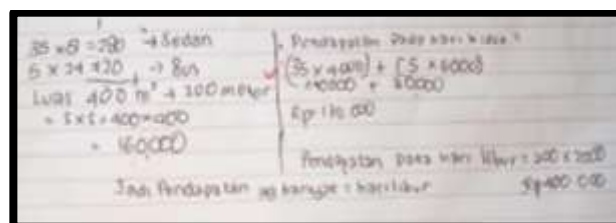 35 x 8 = 280 → Sedan
5 x 24 = 120 → Bus
Luas 400 m² + 200 meter
= 5 x 5 = 400 x 400
= 160,000
Pendapatan pada hari biasa =
(35 x 4000) + (5 x 6000)
140000 +
Rp 170 000
Pendapatan pada hari libur = 200 x 2000
Rp 400.000
Jadi Pendapatan yg banyak = hari libur